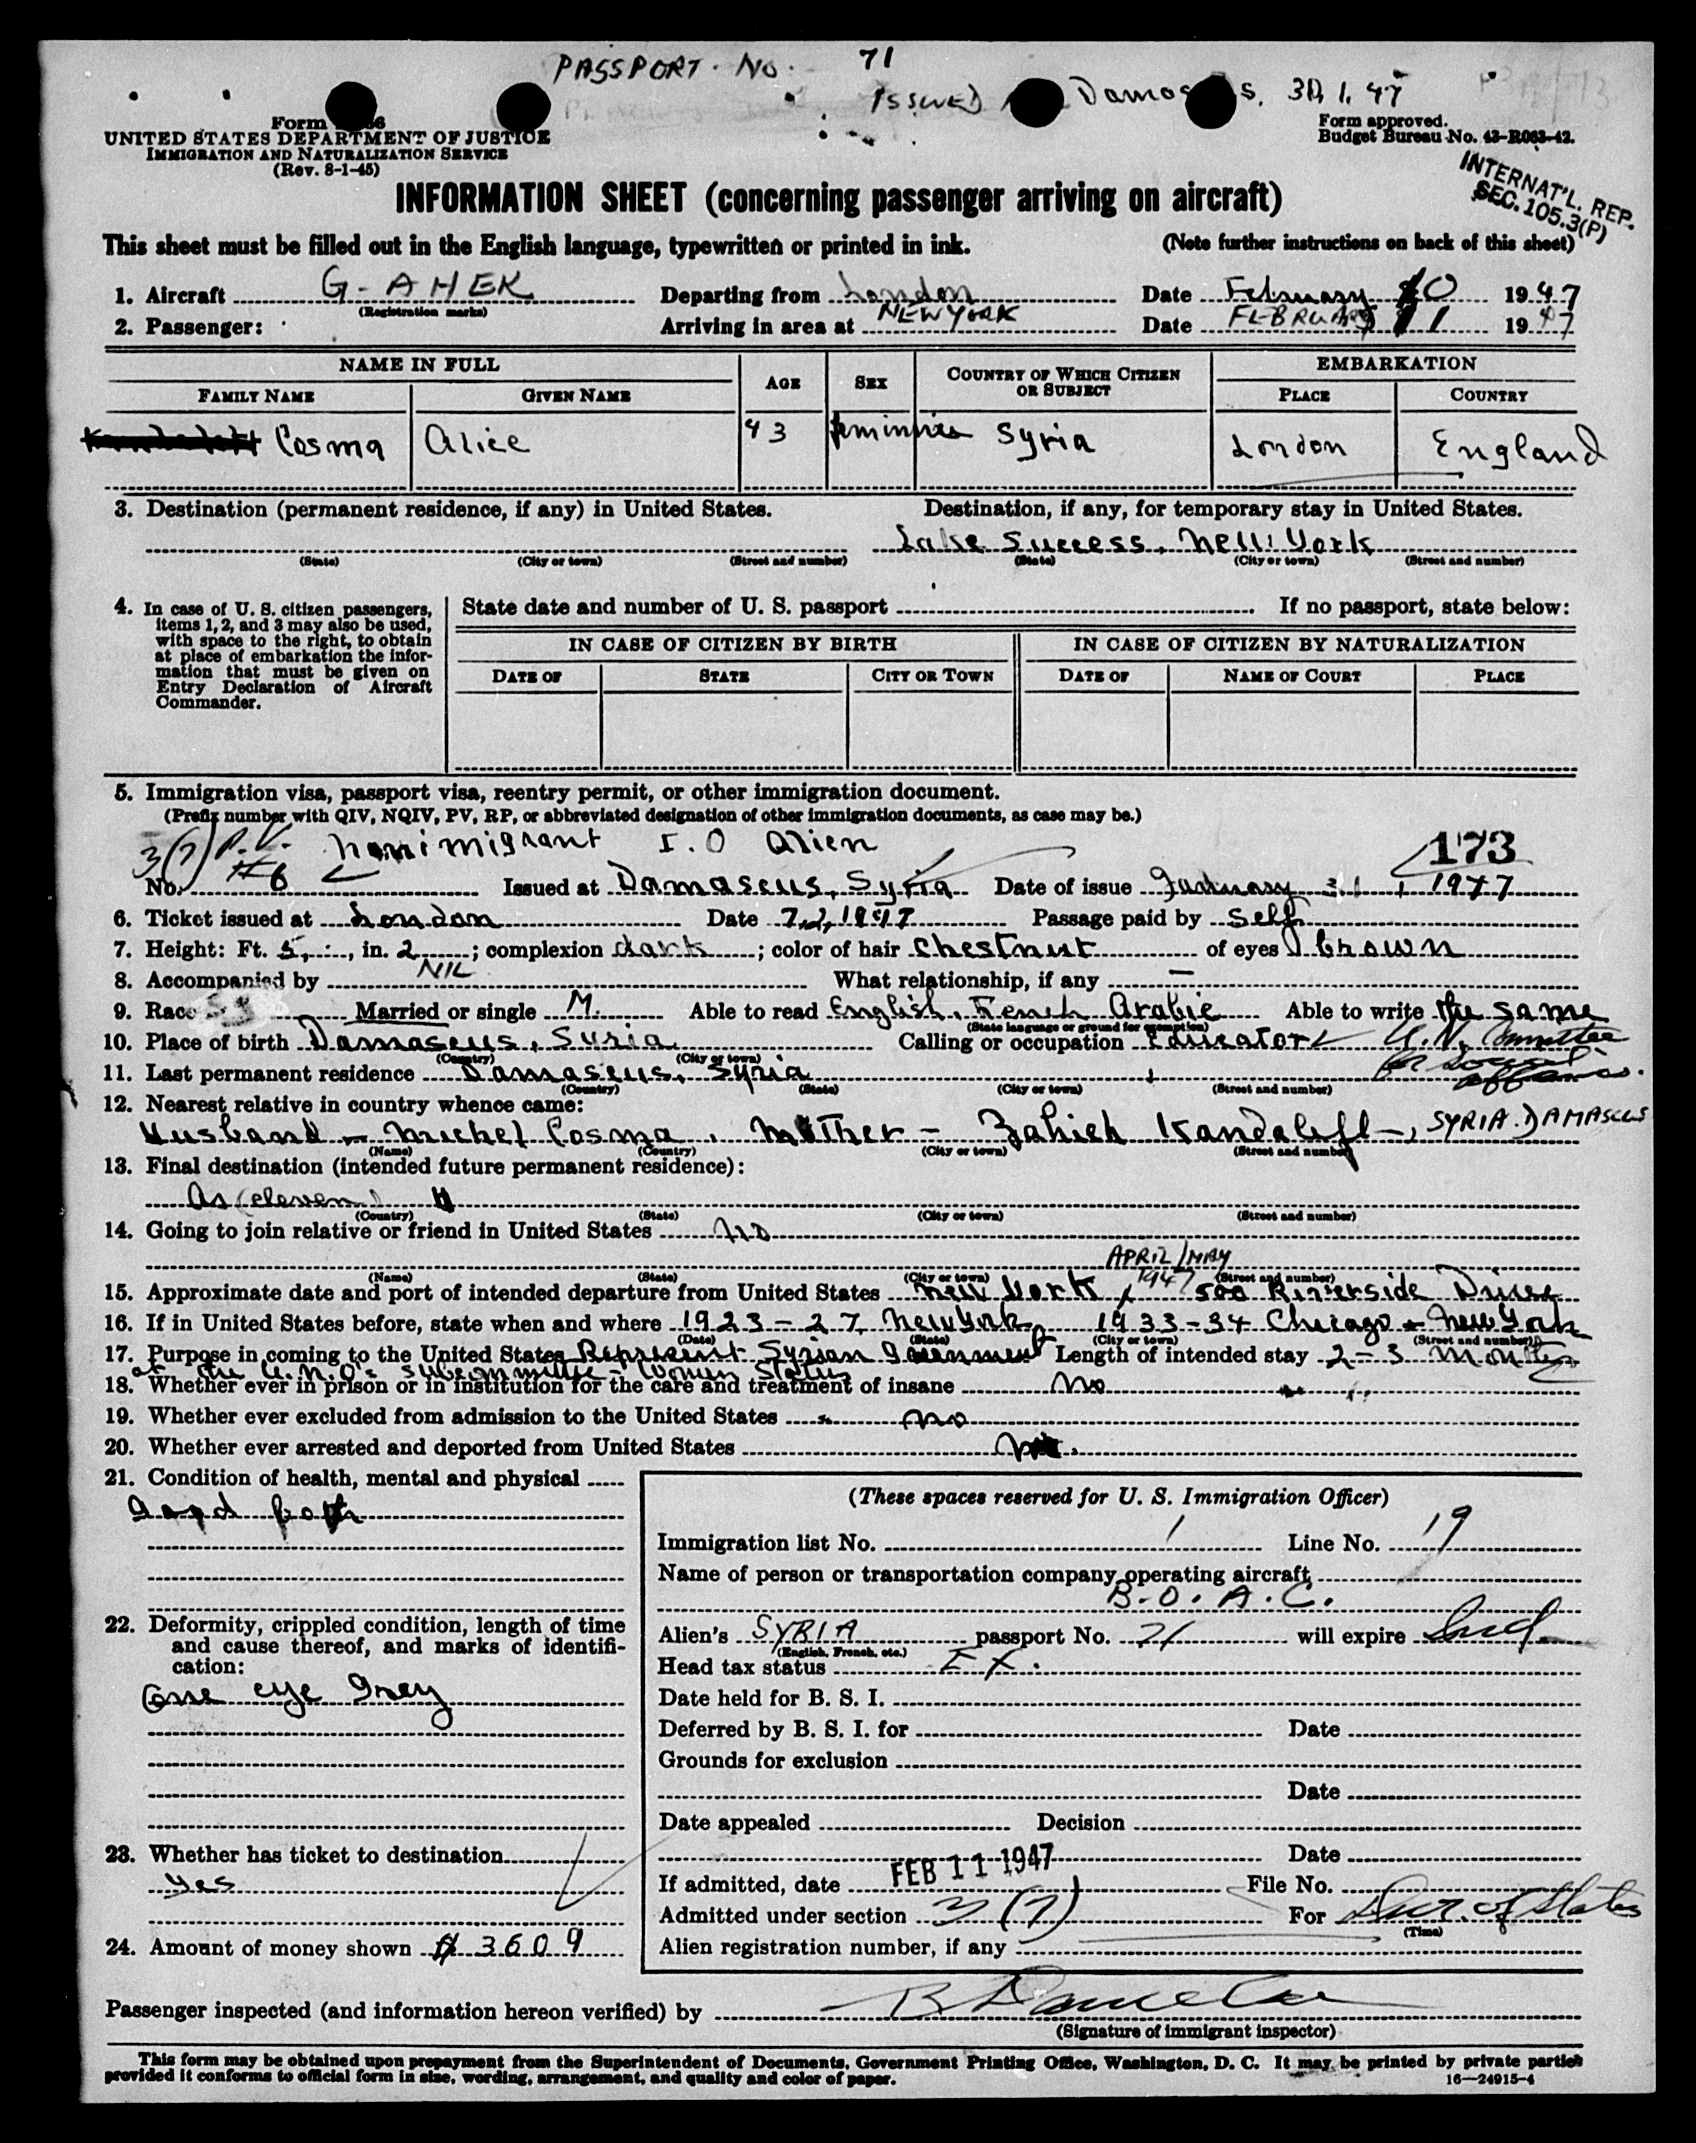 PASSPORT. No. 71
ISSUED Damas s. 31. 1. 47
Form 66
UNITED STATES DEPARTMENT OF JUSTICE
IMMIGRATION AND NATURALIZATION SERVICE
(Rev. 8-1-45)
Form approved.
Budget Bureau No. 43-R083-42.
INTERNAT'L. REP.
SEC. 105.3(P)
INFORMATION SHEET (concerning passenger arriving on aircraft)
This sheet must be filled out in the English language, typewritten or printed in ink. (Note further instructions on back of this sheet)
1. Aircraft G-AHEK Departing from London Date February 10 1947
(Registration marks)
2. Passenger: Arriving in area at NEW YORK Date FEBRUARY 11 1947
NAME IN FULL AGE SEX COUNTRY OF WHICH CITIZEN OR SUBJECT EMBARKATION
FAMILY NAME GIVEN NAME PLACE COUNTRY
Cosma Alice 43 Syria London England
3. Destination (permanent residence, if any) in United States. Destination, if any, for temporary stay in United States.
Lake Success, New York
(State) (City or town) (Street and number) (State) (City or town) (Street and number)
4. In case of U. S. citizen passengers, items 1, 2, and 3 may also be used, with space to the right, to obtain at place of embarkation the information that must be given on Entry Declaration of Aircraft Commander.
State date and number of U. S. passport If no passport, state below:
IN CASE OF CITIZEN BY BIRTH IN CASE OF CITIZEN BY NATURALIZATION
DATE OF STATE CITY OR TOWN DATE OF NAME OF COURT PLACE
5. Immigration visa, passport visa, reentry permit, or other immigration document.
(Prefix number with QIV, NQIV, PV, RP, or abbreviated designation of other immigration documents, as case may be.)
3(7) P.V. nonimigrant I.O alien 173
No. #6 Issued at Damascus, Syria Date of issue January 31, 1947
6. Ticket issued at London Date 7.2.1947 Passage paid by Self
7. Height: Ft. 5, in. 2; complexion dark; color of hair Chestnut of eyes brown
8. Accompanied by NIL What relationship, if any —
9. Race Married or single M. Able to read English, French Arabic Able to write the same
(State language or ground for exemption)
10. Place of birth Damascus, Syria Calling or occupation Educator U.N. Committee for Social affairs.
(Country) (City or town)
11. Last permanent residence Damascus, Syria
(Country) (State) (City or town) (Street and number)
12. Nearest relative in country whence came:
Husband - Michel Cosma, Mother - Zahieh Kandaleft -, SYRIA. DAMASCUS
(Name) (Country) (City or town) (Street and number)
13. Final destination (intended future permanent residence):
As (eleven) 11
(Country) (State) (City or town) (Street and number)
14. Going to join relative or friend in United States No
APRIL/MAY
(Name) (State) (City or town) 1947 (Street and number)
15. Approximate date and port of intended departure from United States New York, 500 Riverside Drive
16. If in United States before, state when and where 1923-27 New York, 1933-34 Chicago + New York
(Date) (State) (City or town) (Street and number)
17. Purpose in coming to the United States Represent Syrian Government Length of intended stay 2-3 Months
at the U.N.O's subcommittee - Women Status
18. Whether ever in prison or in institution for the care and treatment of insane No
19. Whether ever excluded from admission to the United States No
20. Whether ever arrested and deported from United States
21. Condition of health, mental and physical
Good both
22. Deformity, crippled condition, length of time and cause thereof, and marks of identification:
One eye Grey
23. Whether has ticket to destination
Yes
24. Amount of money shown $ 3609
(These spaces reserved for U. S. Immigration Officer)
Immigration list No. 1 Line No. 19
Name of person or transportation company operating aircraft
B.O.A.C.
Alien's SYRIA passport No. 71 will expire
(English, French, etc.)
Head tax status EX.
Date held for B. S. I.
Deferred by B. S. I. for Date
Grounds for exclusion
Date
Date appealed Decision
Date
If admitted, date FEB 11 1947 File No.
Admitted under section 3(7) For Dur. of Status
(Time)
Alien registration number, if any
Passenger inspected (and information hereon verified) by
(Signature of immigrant inspector)
This form may be obtained upon prepayment from the Superintendent of Documents, Government Printing Office, Washington, D. C. It may be printed by private parties
provided it conforms to official form in size, wording, arrangement, and quality and color of paper.
16—24915-4